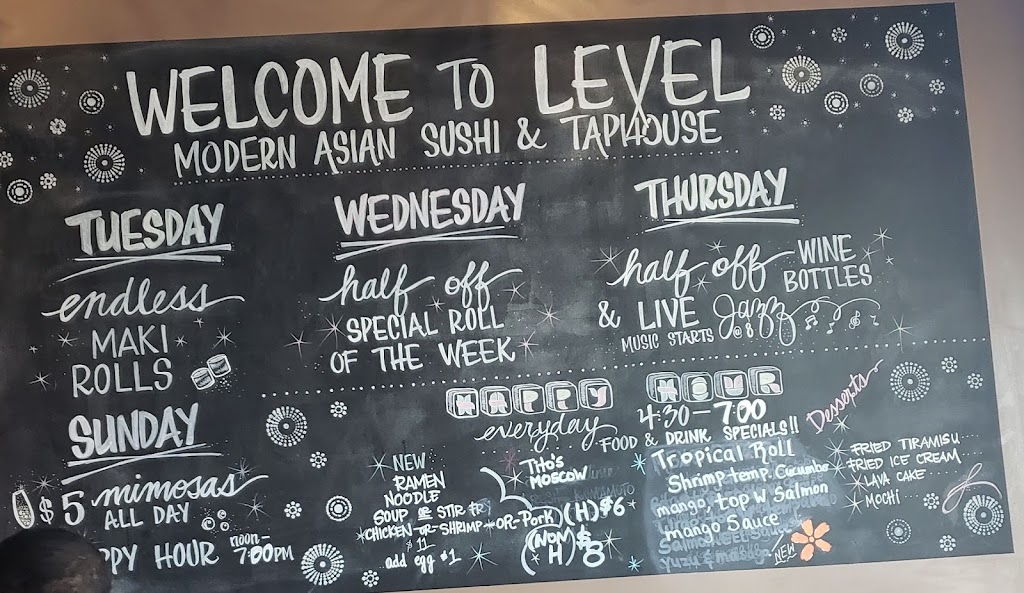 WELCOME TO LEVEL
MODERN ASIAN SUSHI & TAPHOUSE
TUESDAY
endless
MAKI
ROLLS
WEDNESDAY
half off
SPECIAL ROLL
OF THE WEEK
THURSDAY
half off WINE
BOTTLES
& LIVE Jazz
MUSIC STARTS @ 8
SUNDAY
$5 mimosas
ALL DAY
PPY HOUR noon-
7:00PM
HAPPY HOUR
everyday 4:30-7:00
FOOD & DRINK SPECIALS!!
NEW
RAMEN
NOODLE
SOUP OR STIR FRY
*CHICKEN -OR- SHRIMP -OR- Pork
$11
add egg $1
Tito's
MOSCOW
(H) $6
(NON H) $8
Tropical Roll
Shrimp temp. Cucumbe
mango, top w Salmon
mango Sauce
yuzu & masago
NEW
Desserts
FRIED TIRAMISU
FRIED ICE CREAM
LAVA CAKE
MOCHI